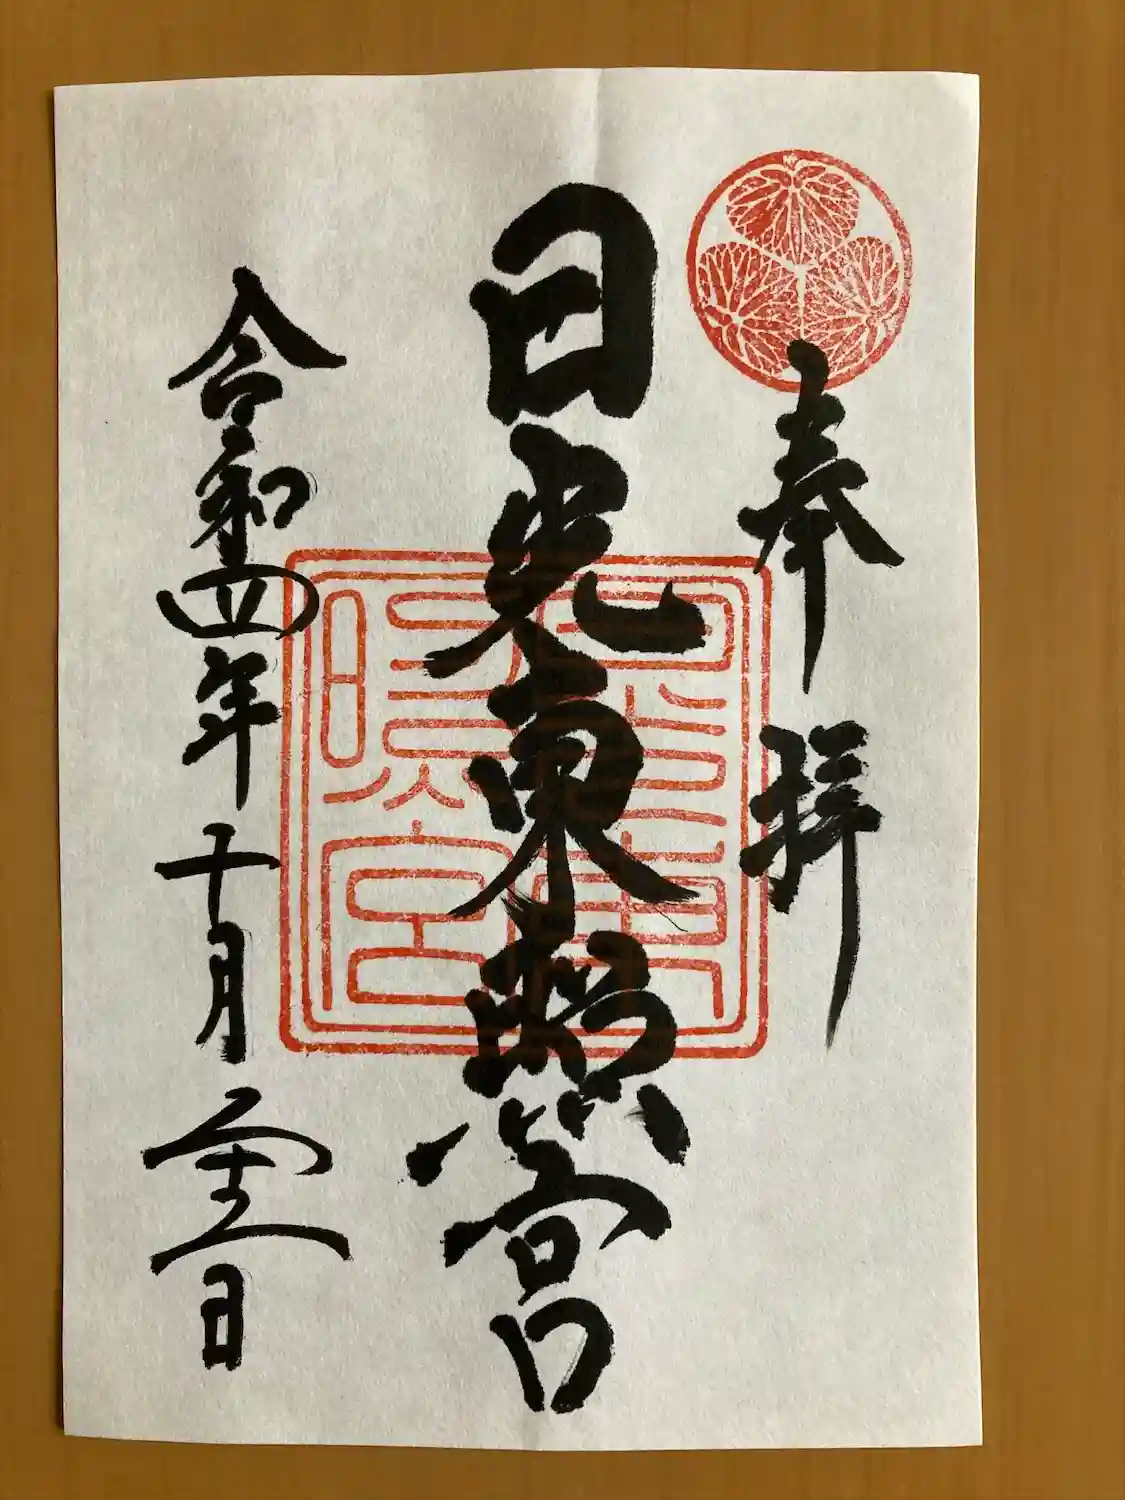 奉拝
日光東照宮
令和四年十月二十二日
日光東
照宮